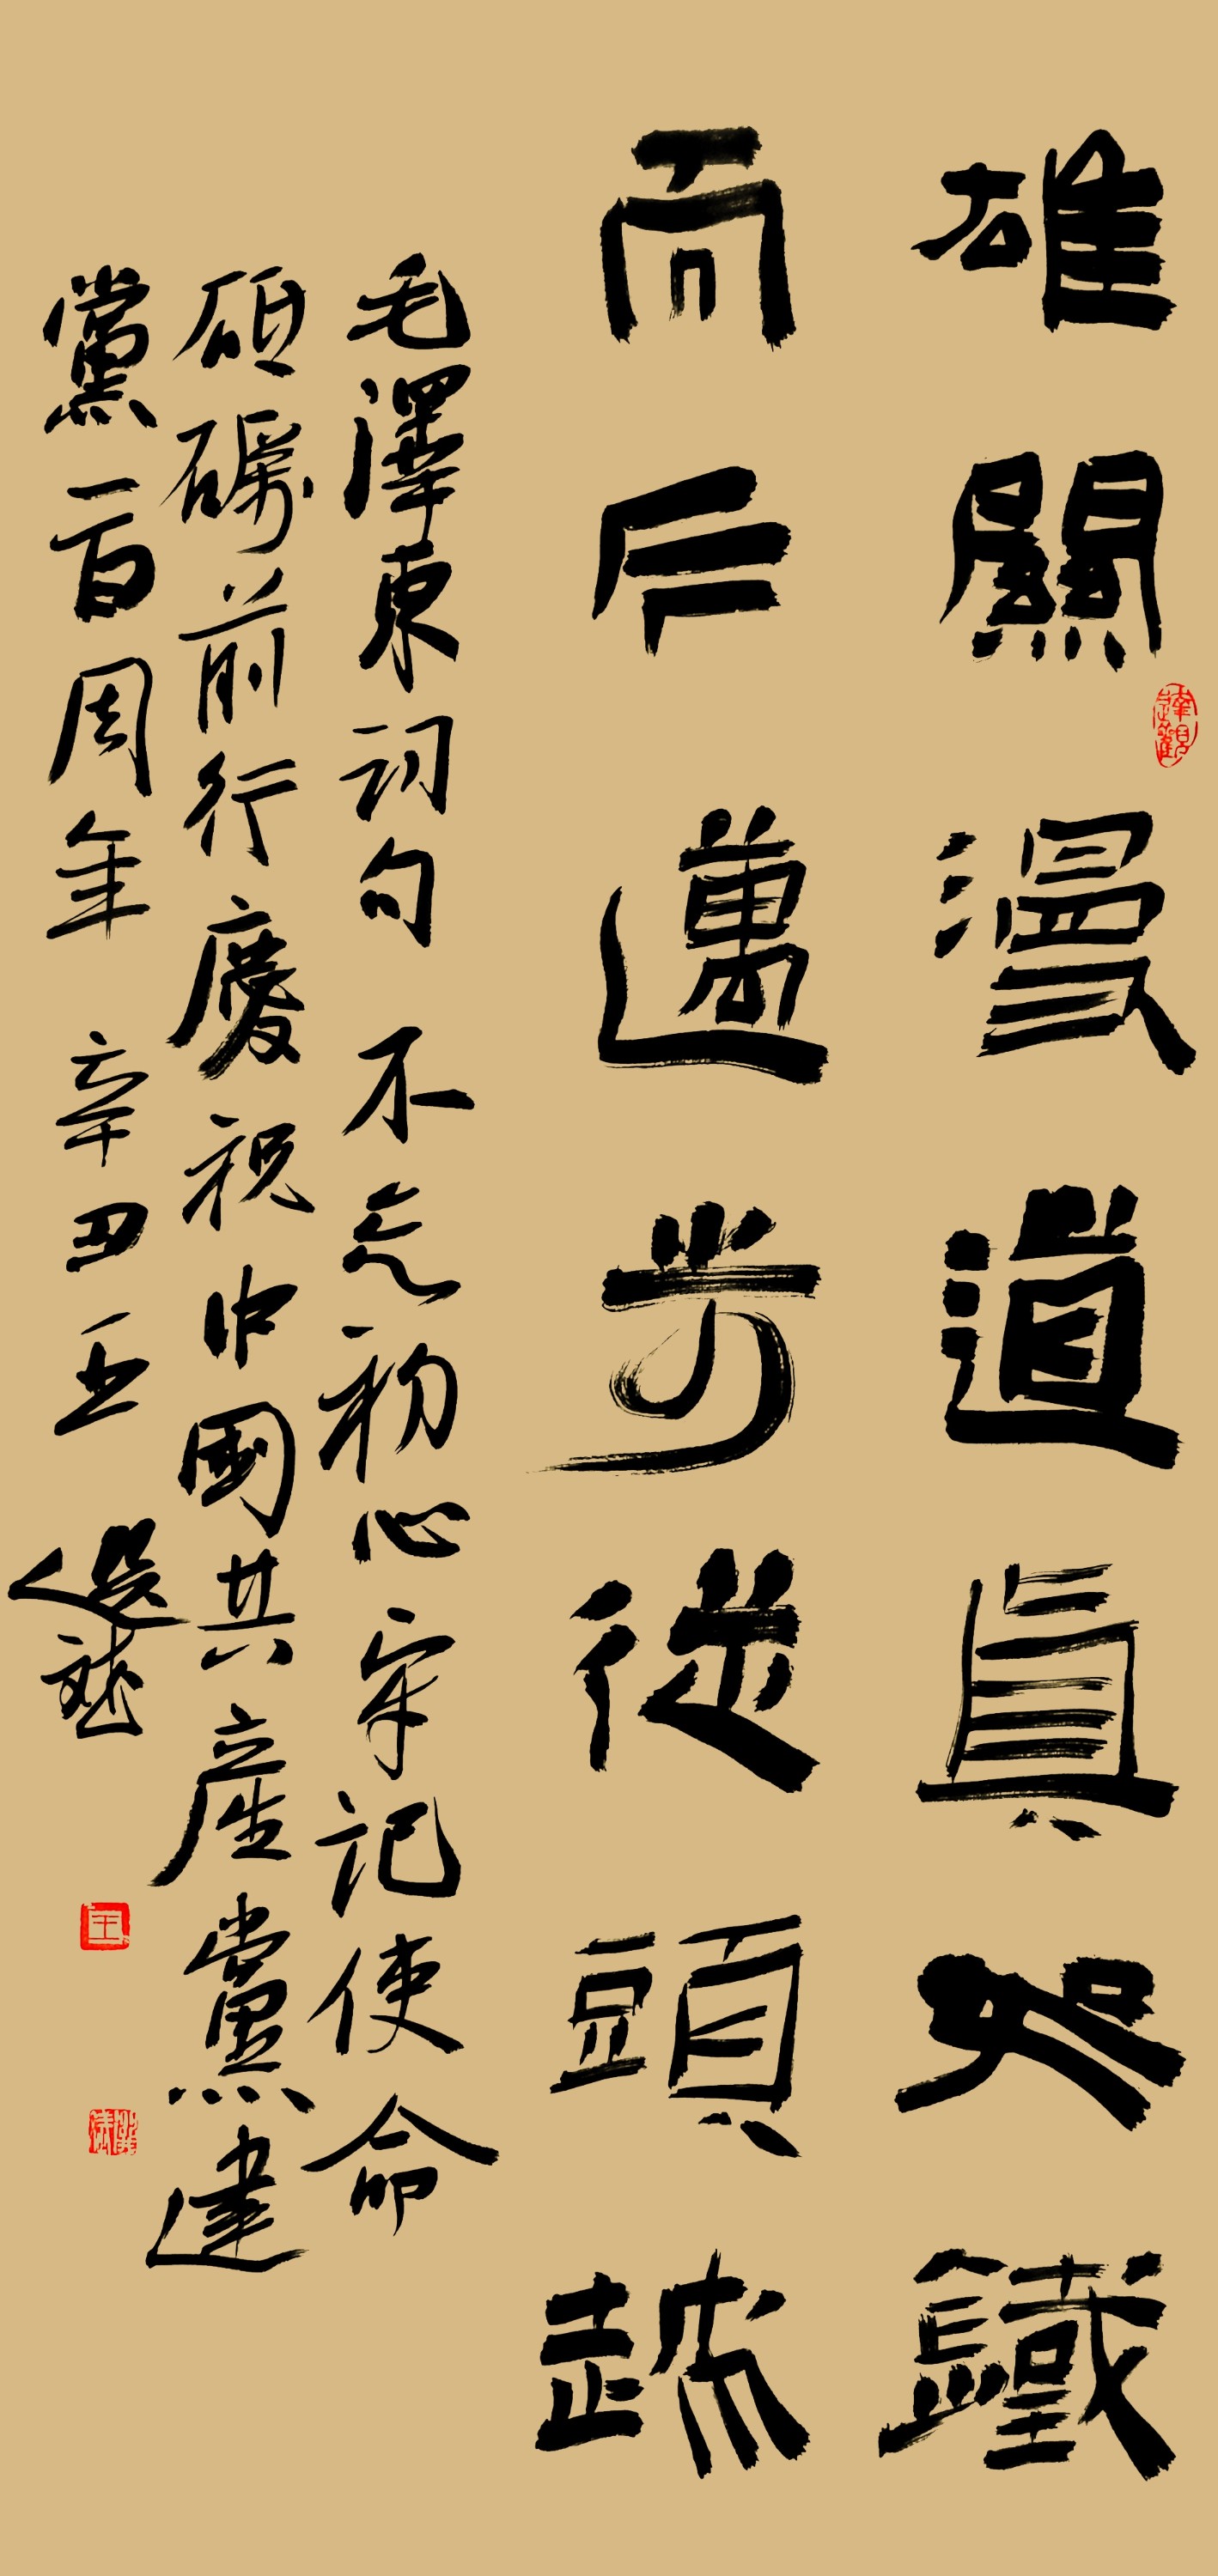 雄關漫道眞如鐵
達觀
而今邁步從頭越
毛澤東詞句 不忘初心牢記使命
砥礪前行慶祝中國共産黨建
黨一百周年 辛丑 王選斌
王